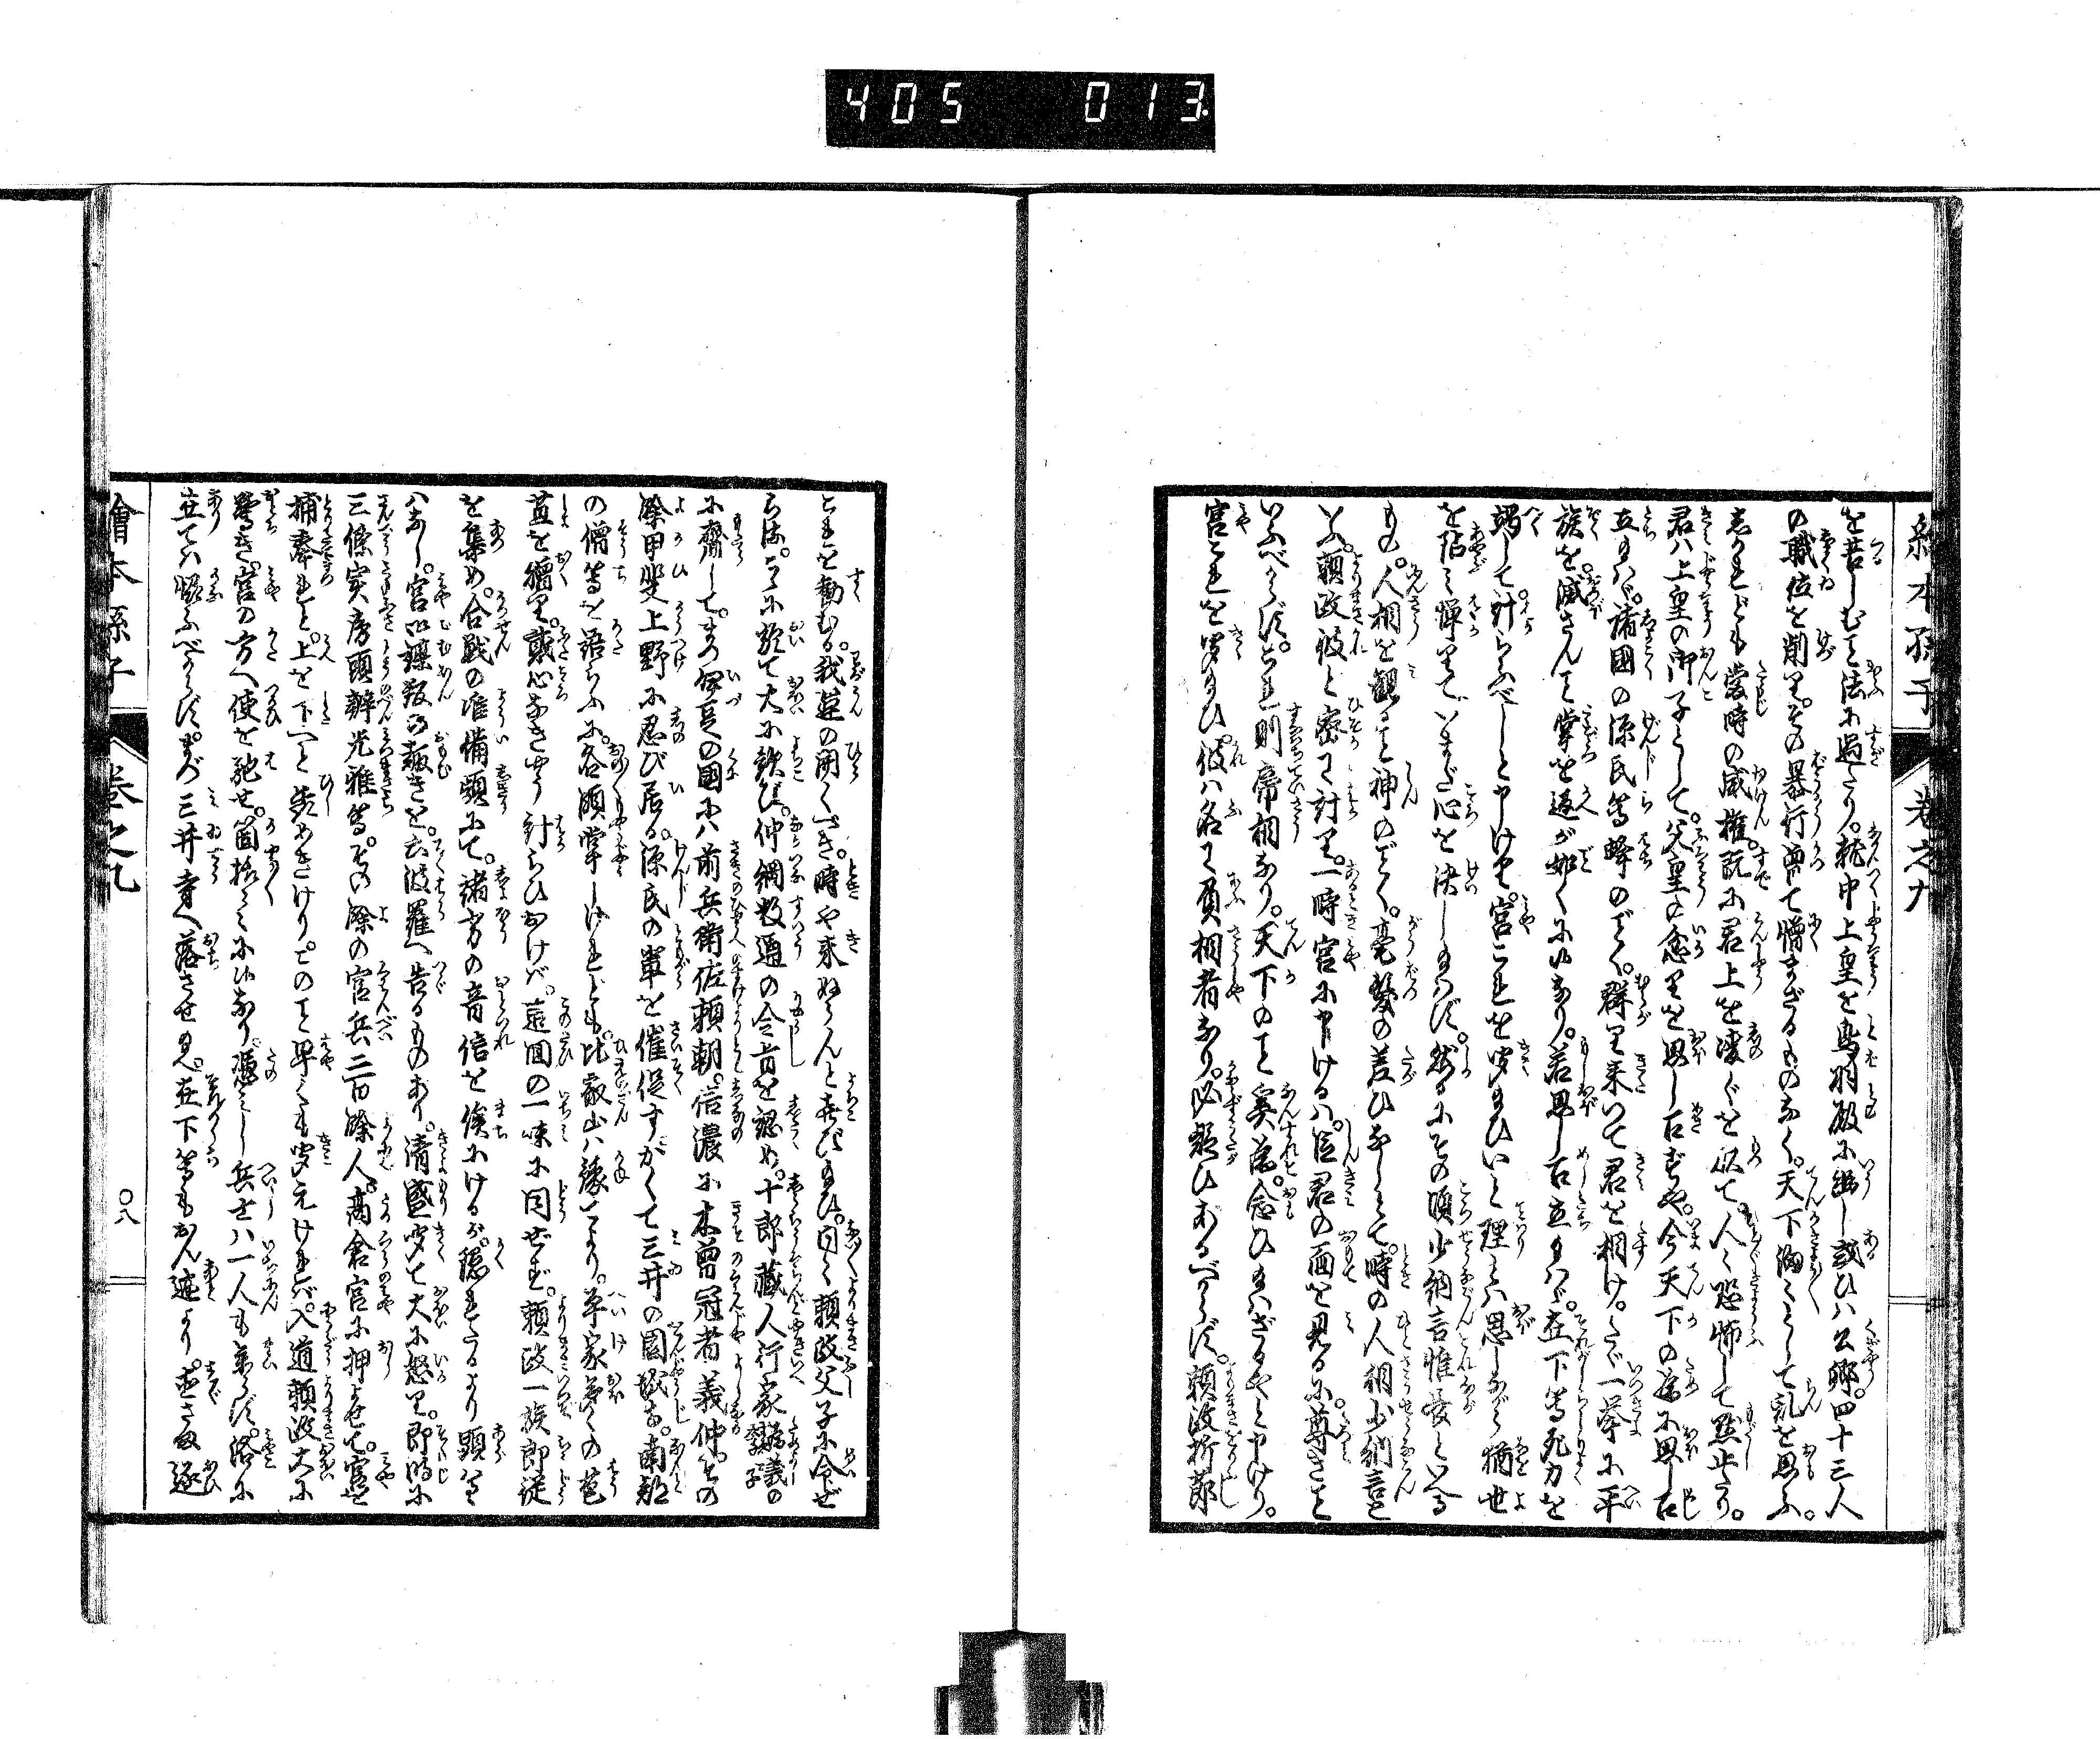 405 013
絵本孫子 巻之九
を苦しむること法に過たり。就中上皇を鳥羽殿に幽し或ひハ公卿。四十三人
の職位を削り。その暴行曽て憎まざるものなく。天下溺くとして乱を思ふ。
されども当時の威権。既に君上を凌ぐを以て。人々恐怖して黙止たり。
君ハ上皇の御子として。父皇の怒りを思し召ずや。今天下の為に思し召
立玉ハヾ。諸国の源氏等蜂のごとく。群り来つて君を相け。たゞ一挙に平
族を滅さんこと掌を返すが如くに候なり。若思し召立玉ハヾ。在下等死力を
竭して計らふべしと申けり。宮これを聞玉ひいと理とハ思しながら猶世
を阽み憚りていまだ心を決し玉ハず。然るにその頃少納言惟長といへる
もの。人相を観こと神のごとく。毫髪の差ひなしとて。時の人相少納言と
いふ。頼政彼と密に計り。一時宮に申けるハ。臣君の面を見るに。尊きこと
いふべからず。これ則帝相なり。天下のこと奚為。念ひ玉ハざるやと申けり。
宮これを聞玉ひ。彼ハ名に負相者なり。必疑ひあるべからず。頼政折節
これを勧むる。我運の開くべき。時や来ぬらんと喜び玉ひ。同く頼政父子に令ぜ
らる。こゝに於て大に歓び。仲綱数通の令旨を認め。十郎蔵人行家為義の季子
に齎して。まづ伊豆の国にハ前兵衛佐頼朝。信濃に木曽冠者義仲。その
余甲斐上野に忍び居る。源氏の輩を催促すかくて三井の園城寺。南都
の僧等を語らふに。各領掌しけれども。比叡山ハ縁ことより。平家多くの苞
苴を贈り。弐心なきやう計らひおけバ。這回の一味に同ぜず。頼政一族郎従
を集め。合戦の准備頭にて。諸方の音信を俟にける。が。隠れたるより顕ハるゝ
ハなし。宮御謀叛の趣きを。六波羅へ告るものあり。清盛聞て大に怒り。即時に
三條実房頭辨光雅等。その余の官兵二百余人。高倉宮に押よせて。宮を
捕奉れと。上を下へと犇めきけり。このこと早くも聞えけれバ。入道頼政大に
驚き。宮の方へ使を馳せ。箇様〻〻に候なり。憑もし兵士ハ一人も来らず。洛に
在てハ協ふべからず。まづ三井寺へ落させ玉へ。在下等もおん迹より。直さま逐
繪本孫子 巻之九 〇八